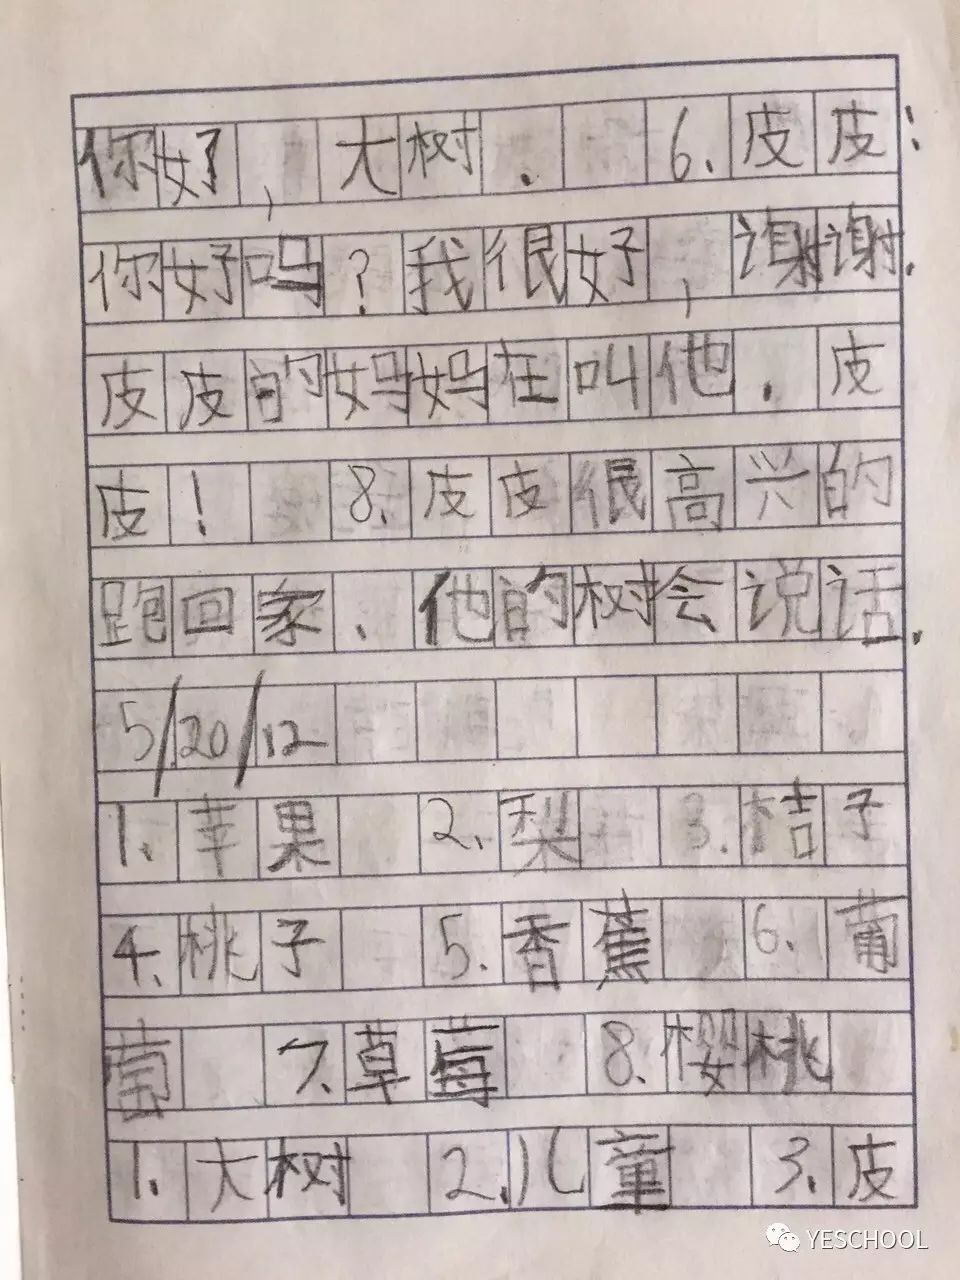 你好，大树. 6. 皮皮：
你好吗？我很好，谢谢.
皮皮的妈妈在叫他. 皮
皮！ 8. 皮皮很高兴的
跑回家. 他的树会说话.
5/20/12
1. 苹果 2. 梨 3. 桔子
4. 桃子 5. 香蕉 6. 葡
萄 7. 草莓 8. 樱桃
1. 大树 2. 儿童 3. 皮
YESCHOOL